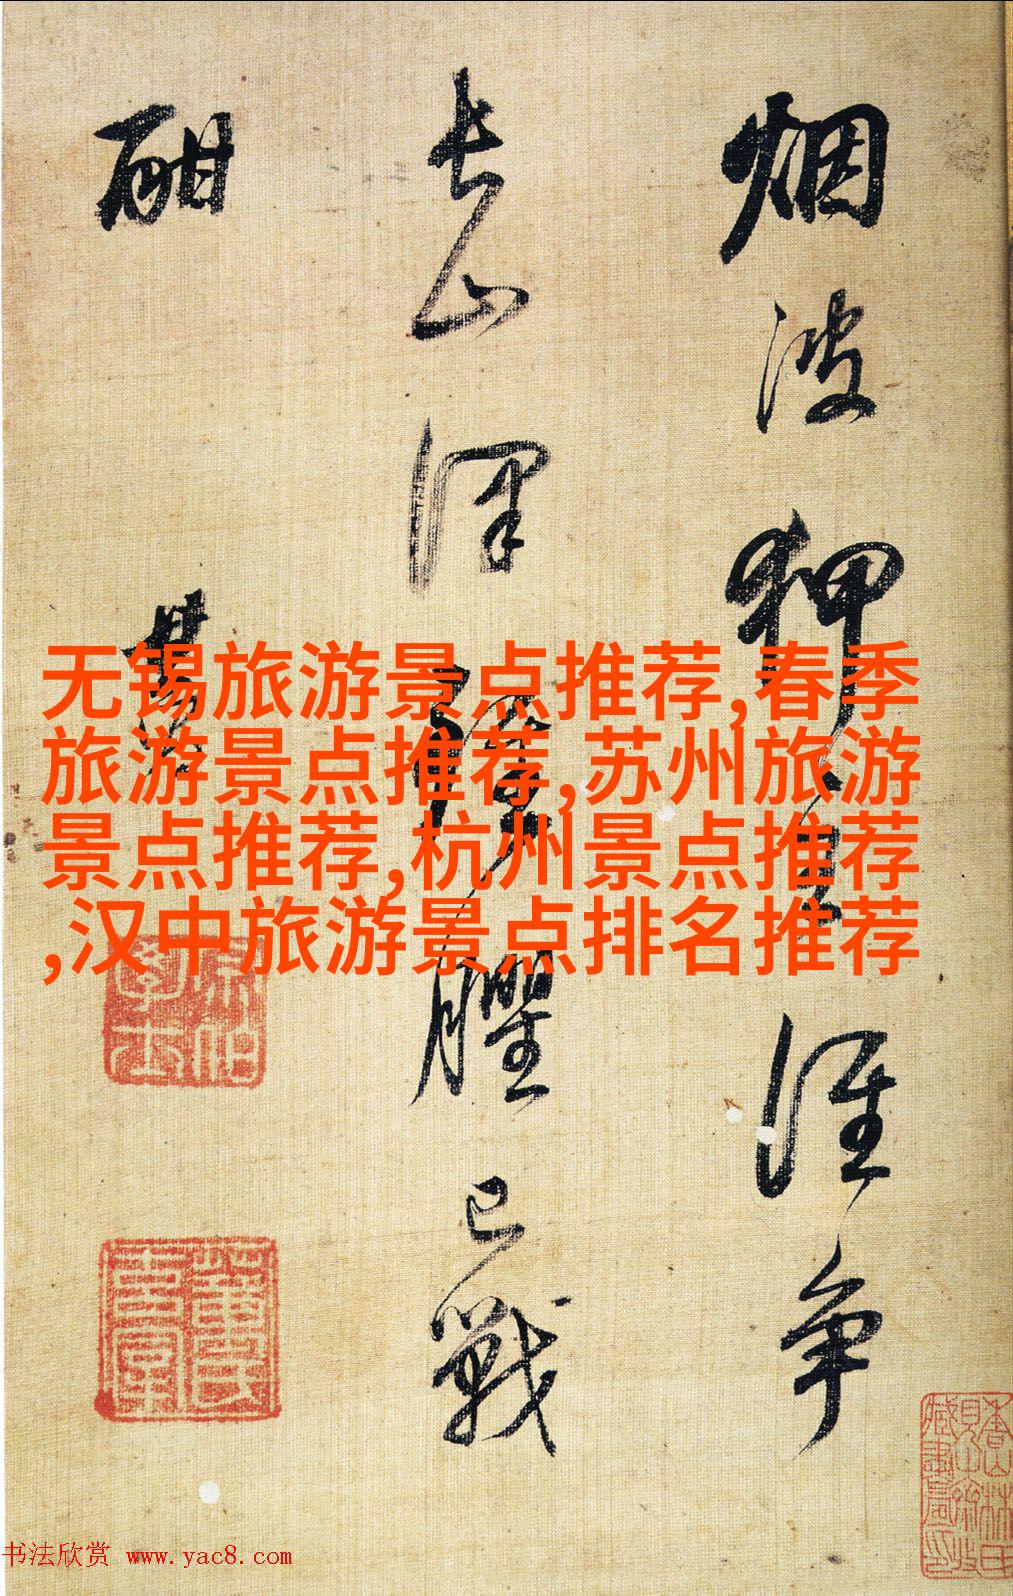 烟波狎誰爭
長山澤臞已戰
酣
其昌
无锡旅游景点推荐,春季
旅游景点推荐,苏州旅游
景点推荐,杭州景点推荐
,汉中旅游景点排名推荐
宗伯學士
书法欣赏 www.yac8.com